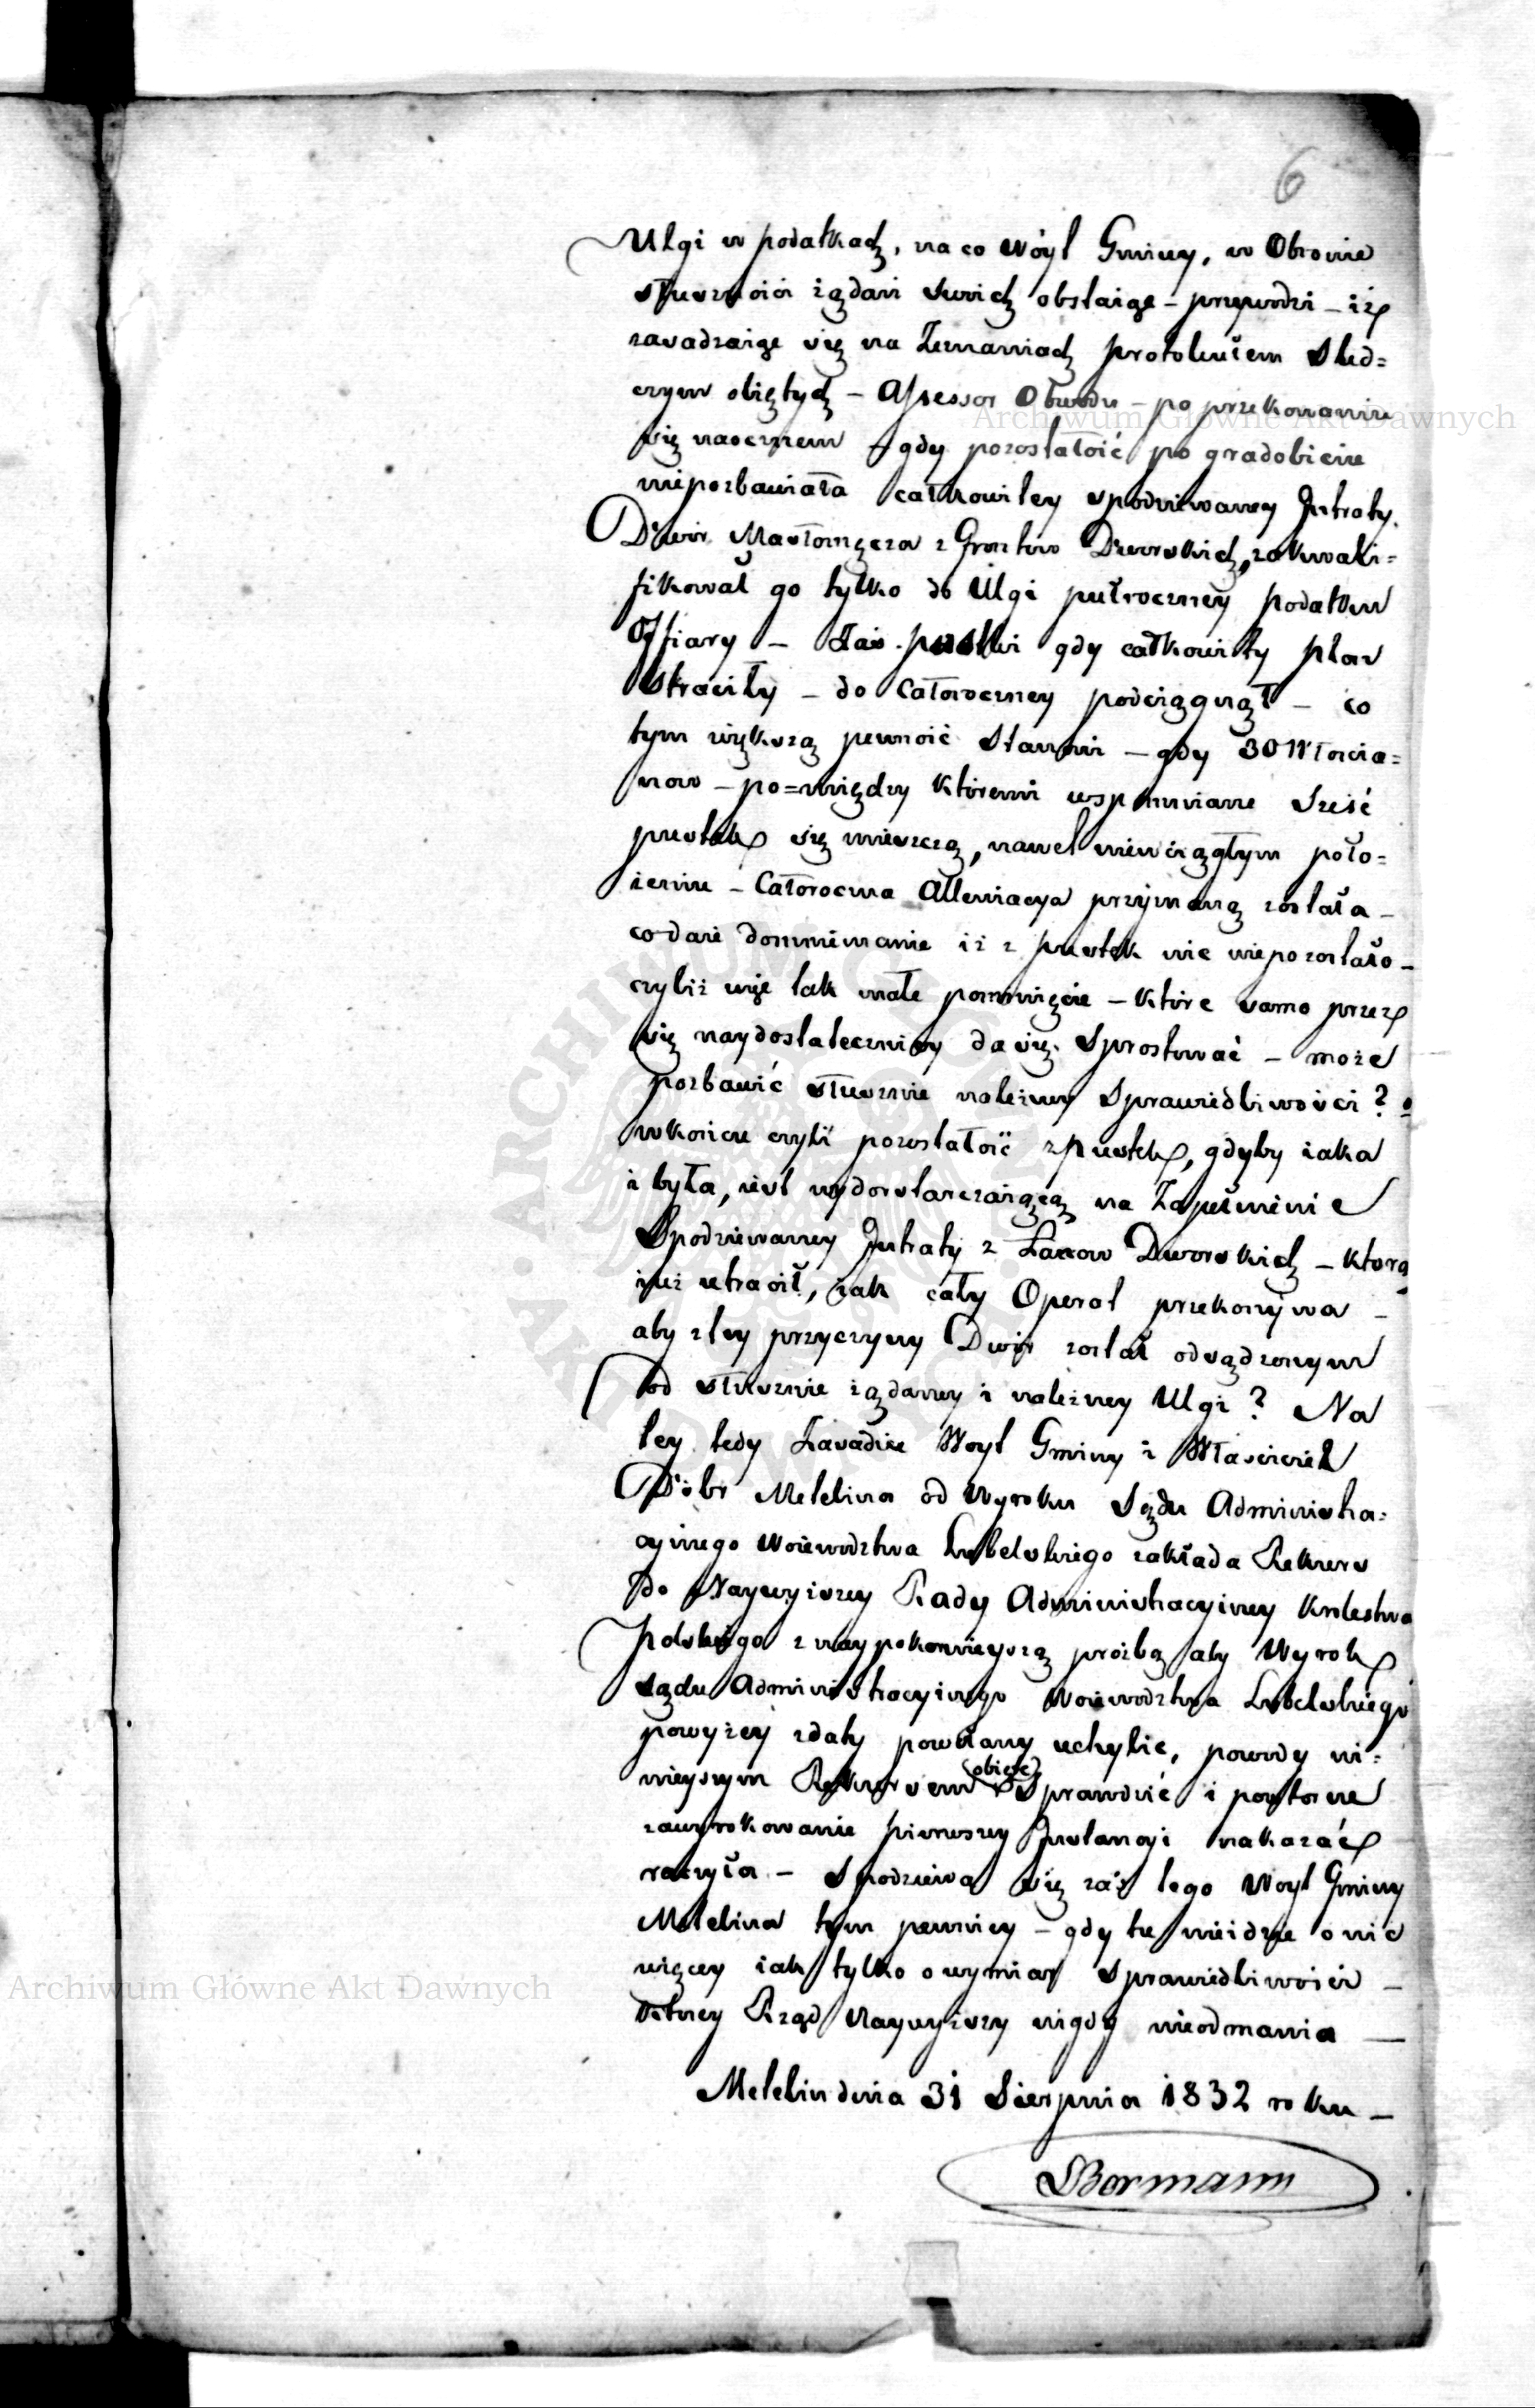 6
Ulgi w podatkach, na co Wóyt Gminy, w Obronie
słuszności żądań swoich obstaiąc – przywodzi – iż
zasadzaiąc się na Zeznaniach protokułem Śled=
czym obiętych – Assessor Obwodu – po przekonaniu
się naocznem – gdy pozostałość po gradobiciu
niepozbawiała całkowitey spodziewaney Jntraty.
Dwór Masłomęcza z Gruntów Dworskich, zakwali=
fikował go tylko do Ulgi pułroczney podatku
Offiary – Zaś pustki gdy całkowity plon
Straciły – do Całoroczney podciągnął – co
tym większą pewność Stanowi – gdy 30 Włościa=
now – po=między któremi wspomniane Sześć
pustek się mieszczą, nawet nieuciągłym poło=
żeniu – Całoroczna Allewiacya przyjmaną została –
co daie domniemanie iż z pustek nic niepozostało –
czyliż więc tak małe pominięcie – które samo przez
się naydostateczniey da się Sprostować – może
pozbawić słusznie należney Sprawiedliwości?
wkońcu czyli pozostałość z pustek, gdyby iaka
i była, iest wydostarczaiącą na Zapełnienie
Spodziewaney Jntraty z Łanow Dworskich – którą
iuż utracił, iak cały Operat przekonywa –
aby z tey przyczyny Dwór został odsądzonym
od słusznie żądaney i należney Ulgi? Na
tey tedy Zasadzie Woyt Gminy i Właściciel
Dóbr Metelina od Wyroku Sądu Administra=
cyinego Woiewodztwa Lubelskiego zakłada Rekurs
do Naywyższey Rady Administracyiney Krolestwa
Polskiego z naypokornieyszą prośbą aby Wyrok
Sądu Administracyinego Woiewodztwa Lubelskiego
powyżey zdaty powołany uchylić, powody ni=
nieyszym Rekursem obięte Sprawdzić i powtorne
zawyrokowanie pierwszey Jnstancyi nakazać
raczyła – Spodziewa się zaś tego Woyt Gminy
Metelina tym pewniey – gdy tu nieidzie o nic
więcey iak tylko o wymiar Sprawiedliwości –
ktorey Rząd Naywyższy nigdy nieodmawia —
Metelin dnia 31 Sierpnia 1832 roku –
Bormann
Archiwum Główne Akt Dawnych
Archiwum Główne Akt Dawnych